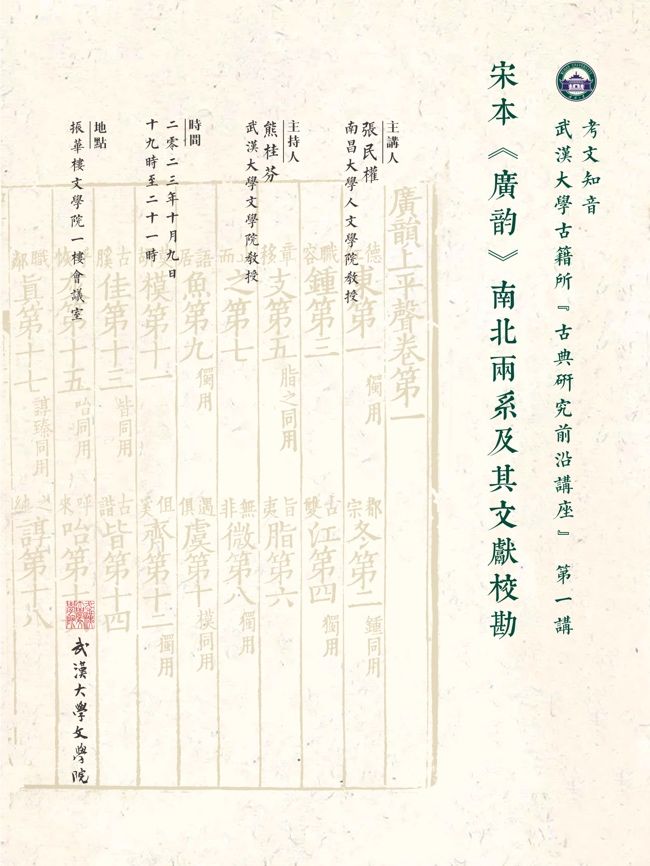 考文知音
武漢大學古籍所『古典研究前沿講座』第一講
宋本《廣韵》南北兩系及其文獻校勘
主講人
張民權
南昌大學人文學院教授
主持人
熊桂芬
武漢大學文學院教授
時間
二零二三年十月九日
十九時至二十一時
地點
振華樓文學院一樓會議室
武漢大學文學院
廣韻上平聲卷第一
東第一 獨用
冬第二 鍾同用
鍾第三
江第四 獨用
支第五 脂之同用
脂第六
之第七
微第八 獨用
魚第九 獨用
虞第十 模同用
模第十一
齊第十二 獨用
佳第十三 皆同用
皆第十四
十五 咍同用
咍第十
眞第十七 諄臻同用
諄第十八